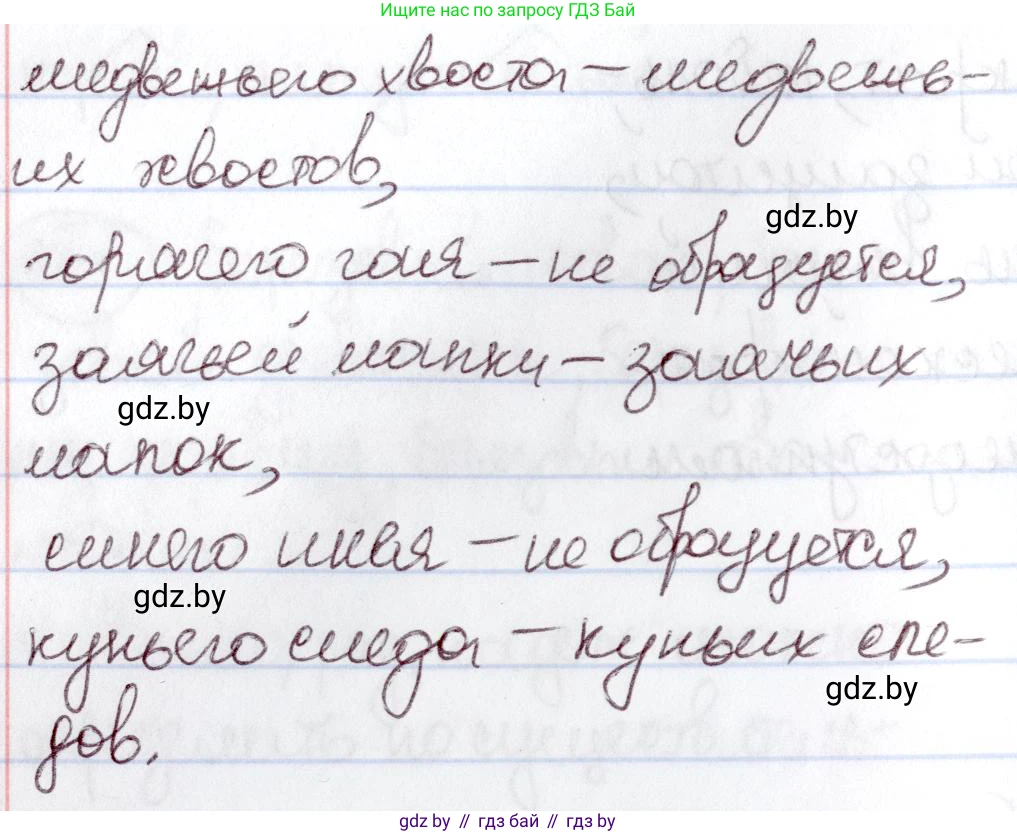 Ищите нас по запросу ГДЗ Бай
медвежьего хвоста – медвежь-
их хвостов,
gdz.by
горячего гоня – не образуется,
заячьей лапки – заячьих
gdz.by
лапок,
синего инея – не образуется,
gdz.by
куньего следа – куньих сле-
gdz.by
дов.
gdz.by // гдз бай // gdz by